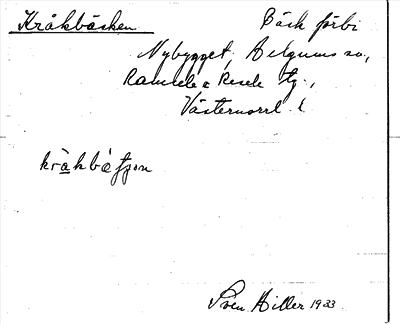 Kråkbäcken Bäck förbi
Nybygget, Helgums sn,
Ramsele & Resele tg.,
Västernorrl. l.
kråkbäʹtjɔn
Sven Hiller 1933